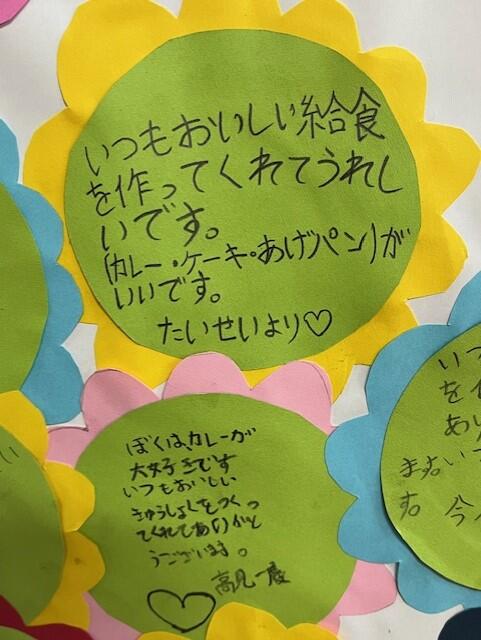 いつもおいしい給食
を作ってくれてうれし
いです。
(カレー・ケーキ・あげパン)が
いいです。
たいせいより♡
ぼくは、カレーが
大好きです
いつもおいしい
きゅうしょくをつくっ
てくれてありがと
うございます。
高見一慶
いつ
を作
あり
ます。いつ
す。今
い